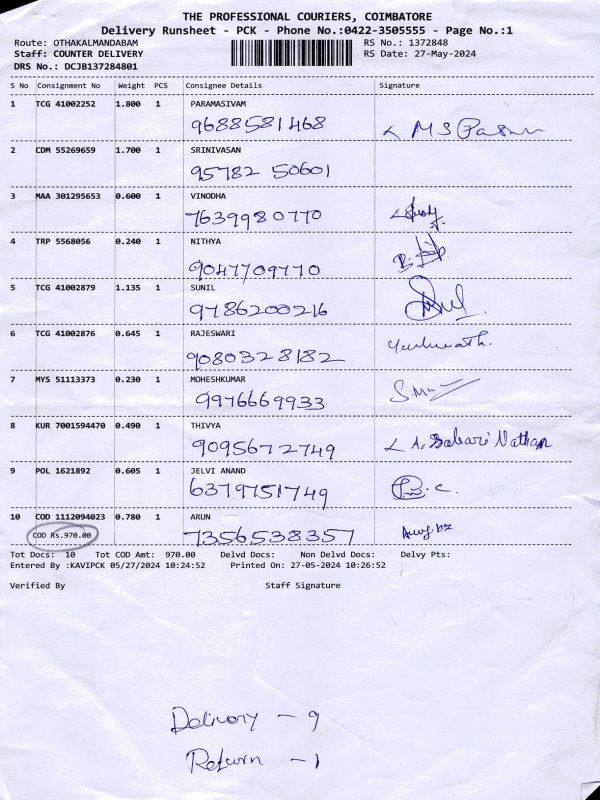 THE PROFESSIONAL COURIERS, COIMBATORE
Delivery Runsheet - PCK - Phone No.:0422-3505555 - Page No.:1
Route: OTHAKALMANDABAM RS No.: 1372848
Staff: COUNTER DELIVERY RS Date: 27-May-2024
DRS No.: DCJB137284801
S No Consignment No Weight PCS Consignee Details Signature
1 TCG 41002252 1.800 1 PARAMASIVAM
9688581468
2 CDM 55269659 1.700 1 SRINIVASAN
95782 50601
3 MAA 301295653 0.600 1 VINODHA
7639980770
4 TRP 5568056 0.240 1 NITHYA
9047709770
5 TCG 41002879 1.135 1 SUNIL
9786200216
6 TCG 41002876 0.645 1 RAJESWARI
9080328182
7 MYS 51113373 0.230 1 MOHESHKUMAR
9976669933
8 KUR 7001594470 0.490 1 THIVYA
9095672749 A. Sabari Nathan
9 POL 1621892 0.605 1 JELVI ANAND
6379751749
10 COD 1112094023 0.780 1 ARUN
COD Rs.970.00 7356538357
Tot Docs: 10 Tot COD Amt: 970.00 Delvd Docs: Non Delvd Docs: Delvy Pts:
Entered By :KAVIPCK 05/27/2024 10:24:52 Printed On: 27-05-2024 10:26:52
Verified By Staff Signature
Delivery - 9
Return - 1